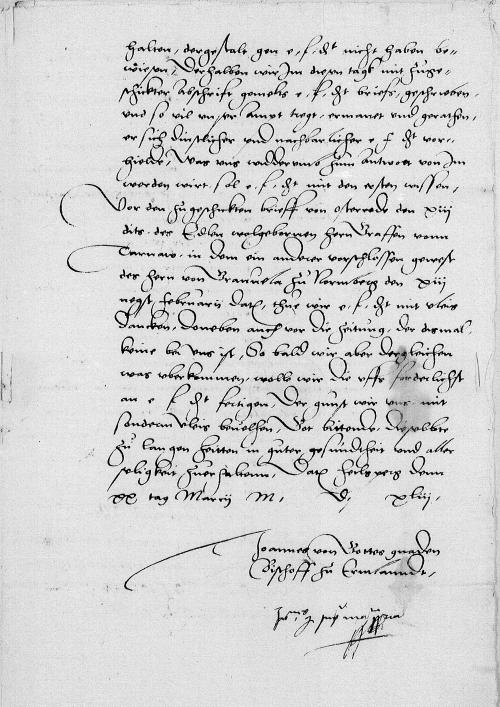 halten, dergestalt gen e. f. dt nicht haben be=
wisen, Derhalben wir Im diesen tags mit zuge=
schickter Abschrifft gemelts e. f. dt briefs, geschrieben,
und so vil unser ampt tregt, ermanet und gerathen,
er sich dinstlicher und nachbarlicher e f dt vor=
hielde, Was uns widderumb zum antwort von Im
werden wirt, sol e. f. dt mit den ersten wissen,
Vor den zugeschickten brieff von osterrode den xiii
dits, des Edlen wolgebornen hern Graffen vonn
Tarnaw, in dem ein anderer vorschlossen gewest
des hern von Granuela zu Normberg den xiii
negst Februarii dat, thue wir e. f. dt mit vleis
dancken, doneben auch vor die zeitung, der dismal
keine bei uns ist, So bald wir aber dergleichen
was uberkommen, wolle wir die uffs forderlichst
an e f dt fertigen, Der gunst wir uns mit
sondern vleis bevelhen, Got bittende, dieselbte
zu langen zeitten in guter gesundtheit und aller
seligkeit zuerhalten, Dat heilsperg denn
xx tag Marcii M, D, xliii,
Joannes von Gottes gnaden
Bischoff zu Ermlanndt,